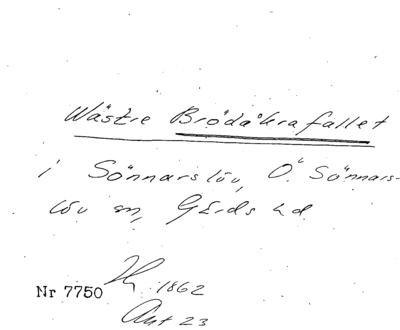 Västre Brödåkrafallet
i Sönnarslöv, Ö. Sönnars-
löv sn, Gärds hd
Nr 7750 1862
Akt 23